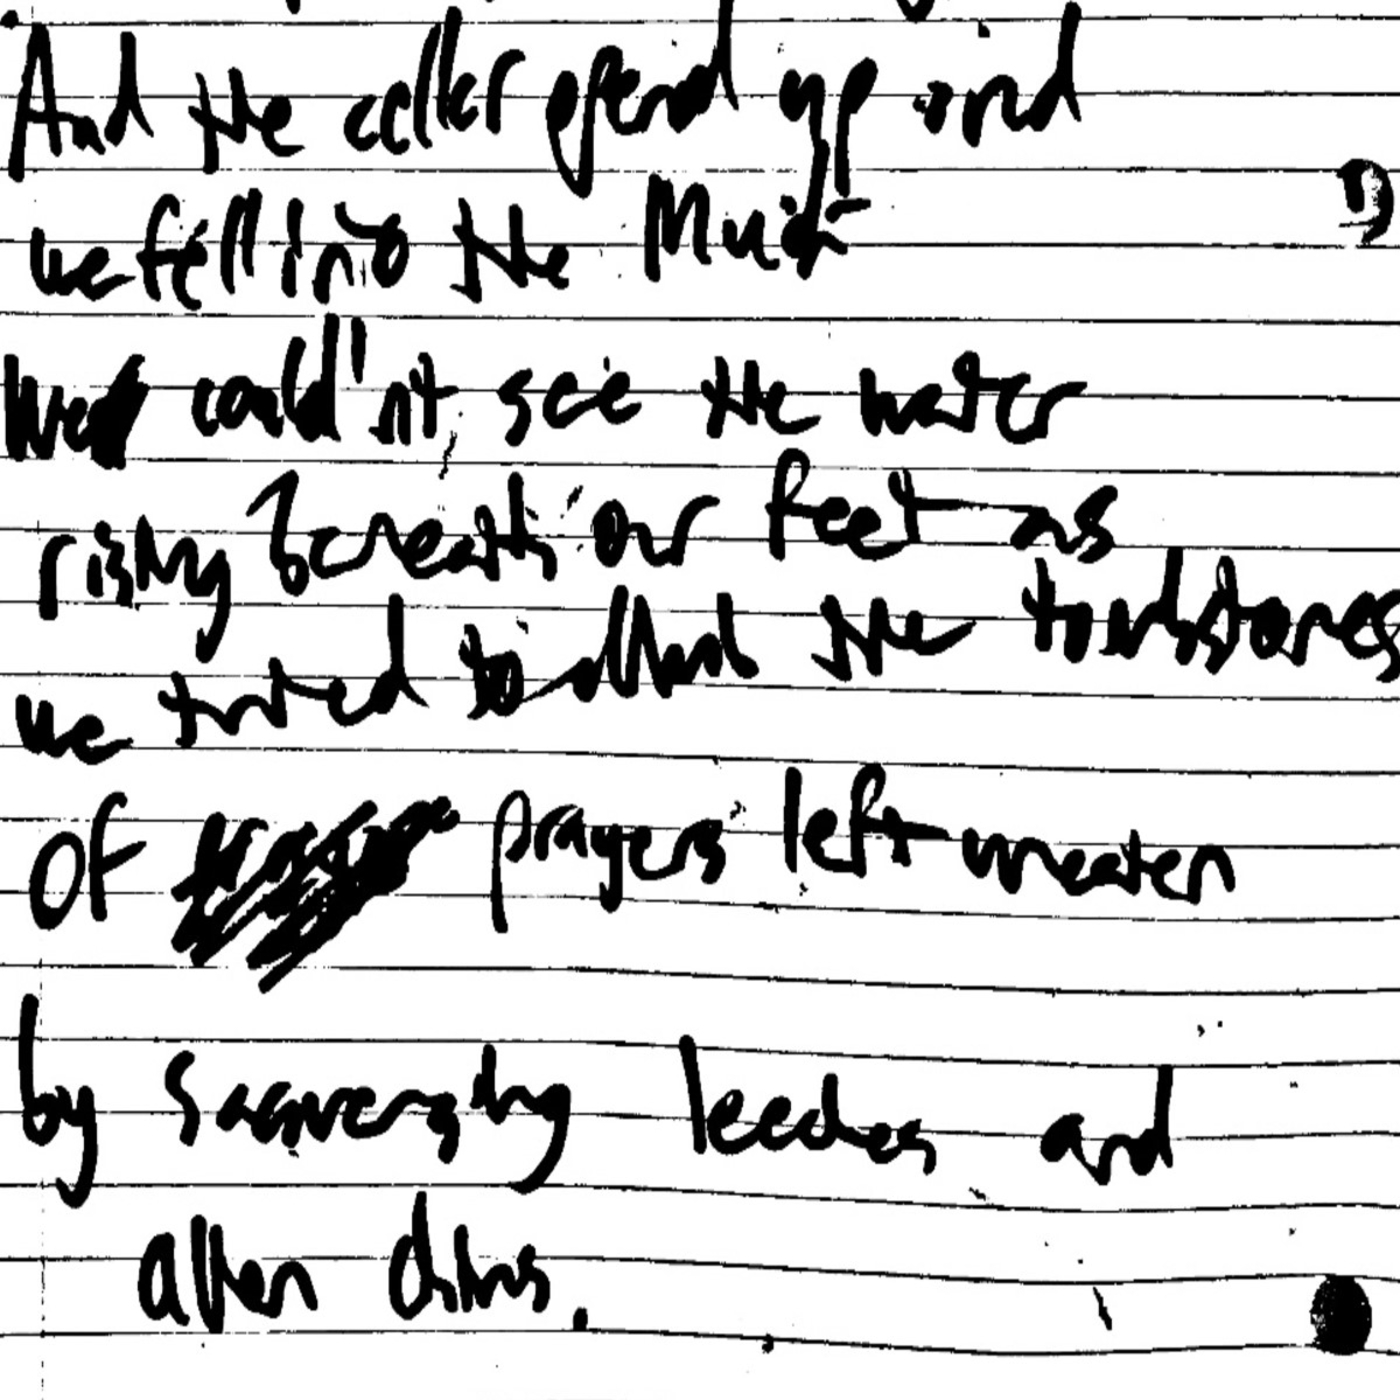 And the cellar opend up and
we fell into the Muck
We could'nt see the water
rising beneath our feet as
we tried to the tombstones
Of prayers left uneaten
by Scavenging leeches and